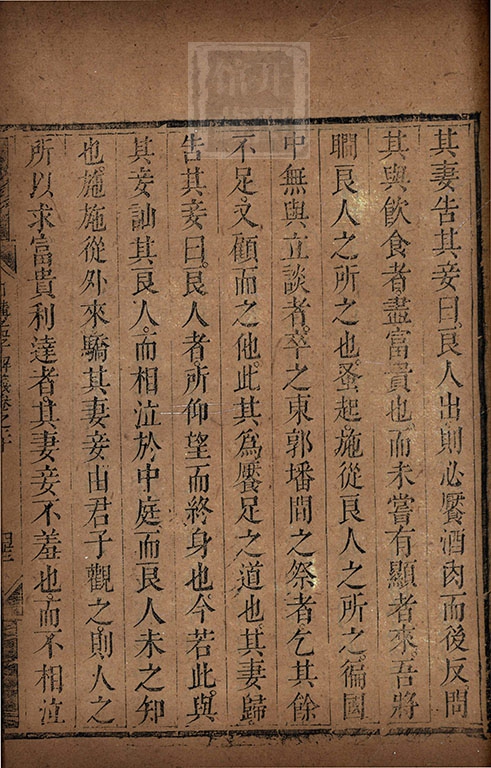 其妻告其妾曰良人出則必饜酒肉而後反問
其與飲食者盡富貴也而未嘗有顯者來吾將
瞷良人之所之也蚤起施從良人之所之徧國
中無與立談者卒之東郭墦間之祭者乞其餘
不足又顧而之他此其為饜足之道也其妻歸
告其妾曰良人者所仰望而終身也今若此與
其妾訕其良人而相泣於中庭而良人未之知
也施施從外來驕其妻妾由君子觀之則人之
所以求富貴利達者其妻妾不羞也而不相泣